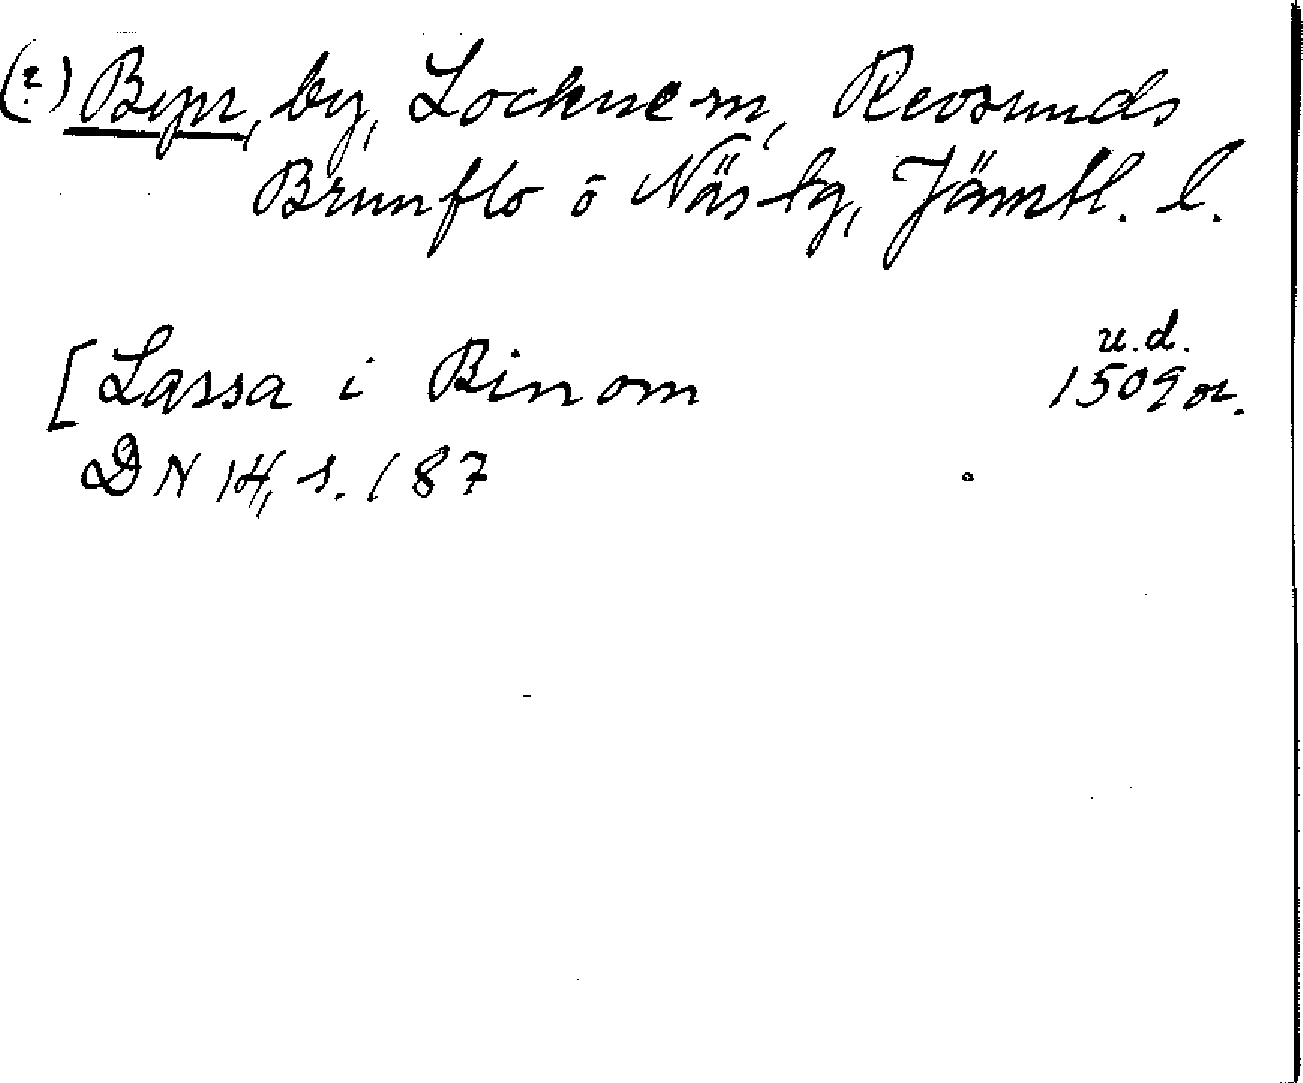 (?) Byn, by, Lockne sn, Revsunds
Brunflo o Näs tg, Jämtl. l.
u.d.
[Lassa i Binom 1509 or.
DN 14, s. 187